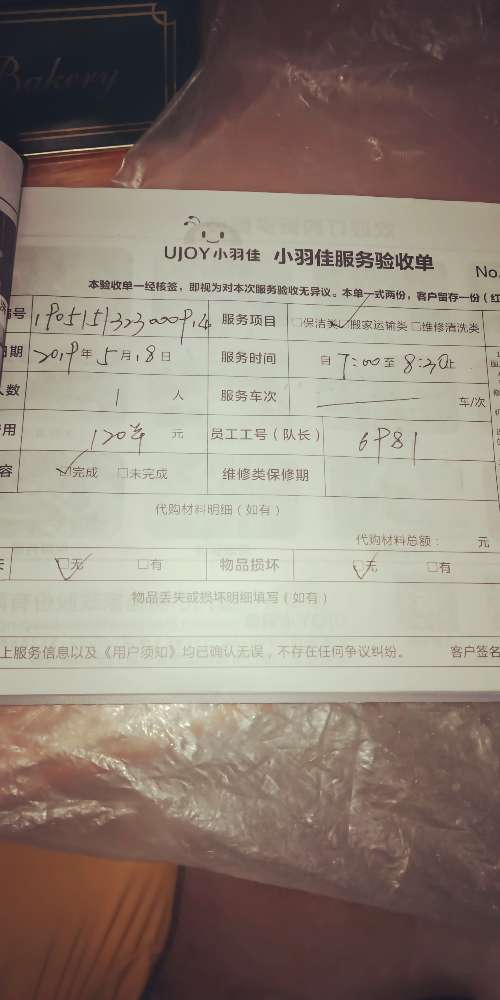 Bakery
UJOY小羽佳 小羽佳服务验收单
No.
本验收单一经核签，即视为对本次服务验收无异议。本单一式两份，客户留存一份（红
编号 服务项目 □保洁类 □搬家运输类 □维修清洗类
日期 2019年 5月 18日 服务时间 自 7:00 至 8:30止
人数 1 人 服务车次 车/次
费用 120 元 员工工号（队长） 6981
内容 □完成 □未完成 维修类保修期
代购材料明细（如有）
代购材料总额： 元
□无 □有 物品损坏 □无 □有
物品丢失或损坏明细填写（如有）
上服务信息以及《用户须知》均已确认无误，不存在任何争议纠纷。 客户签名